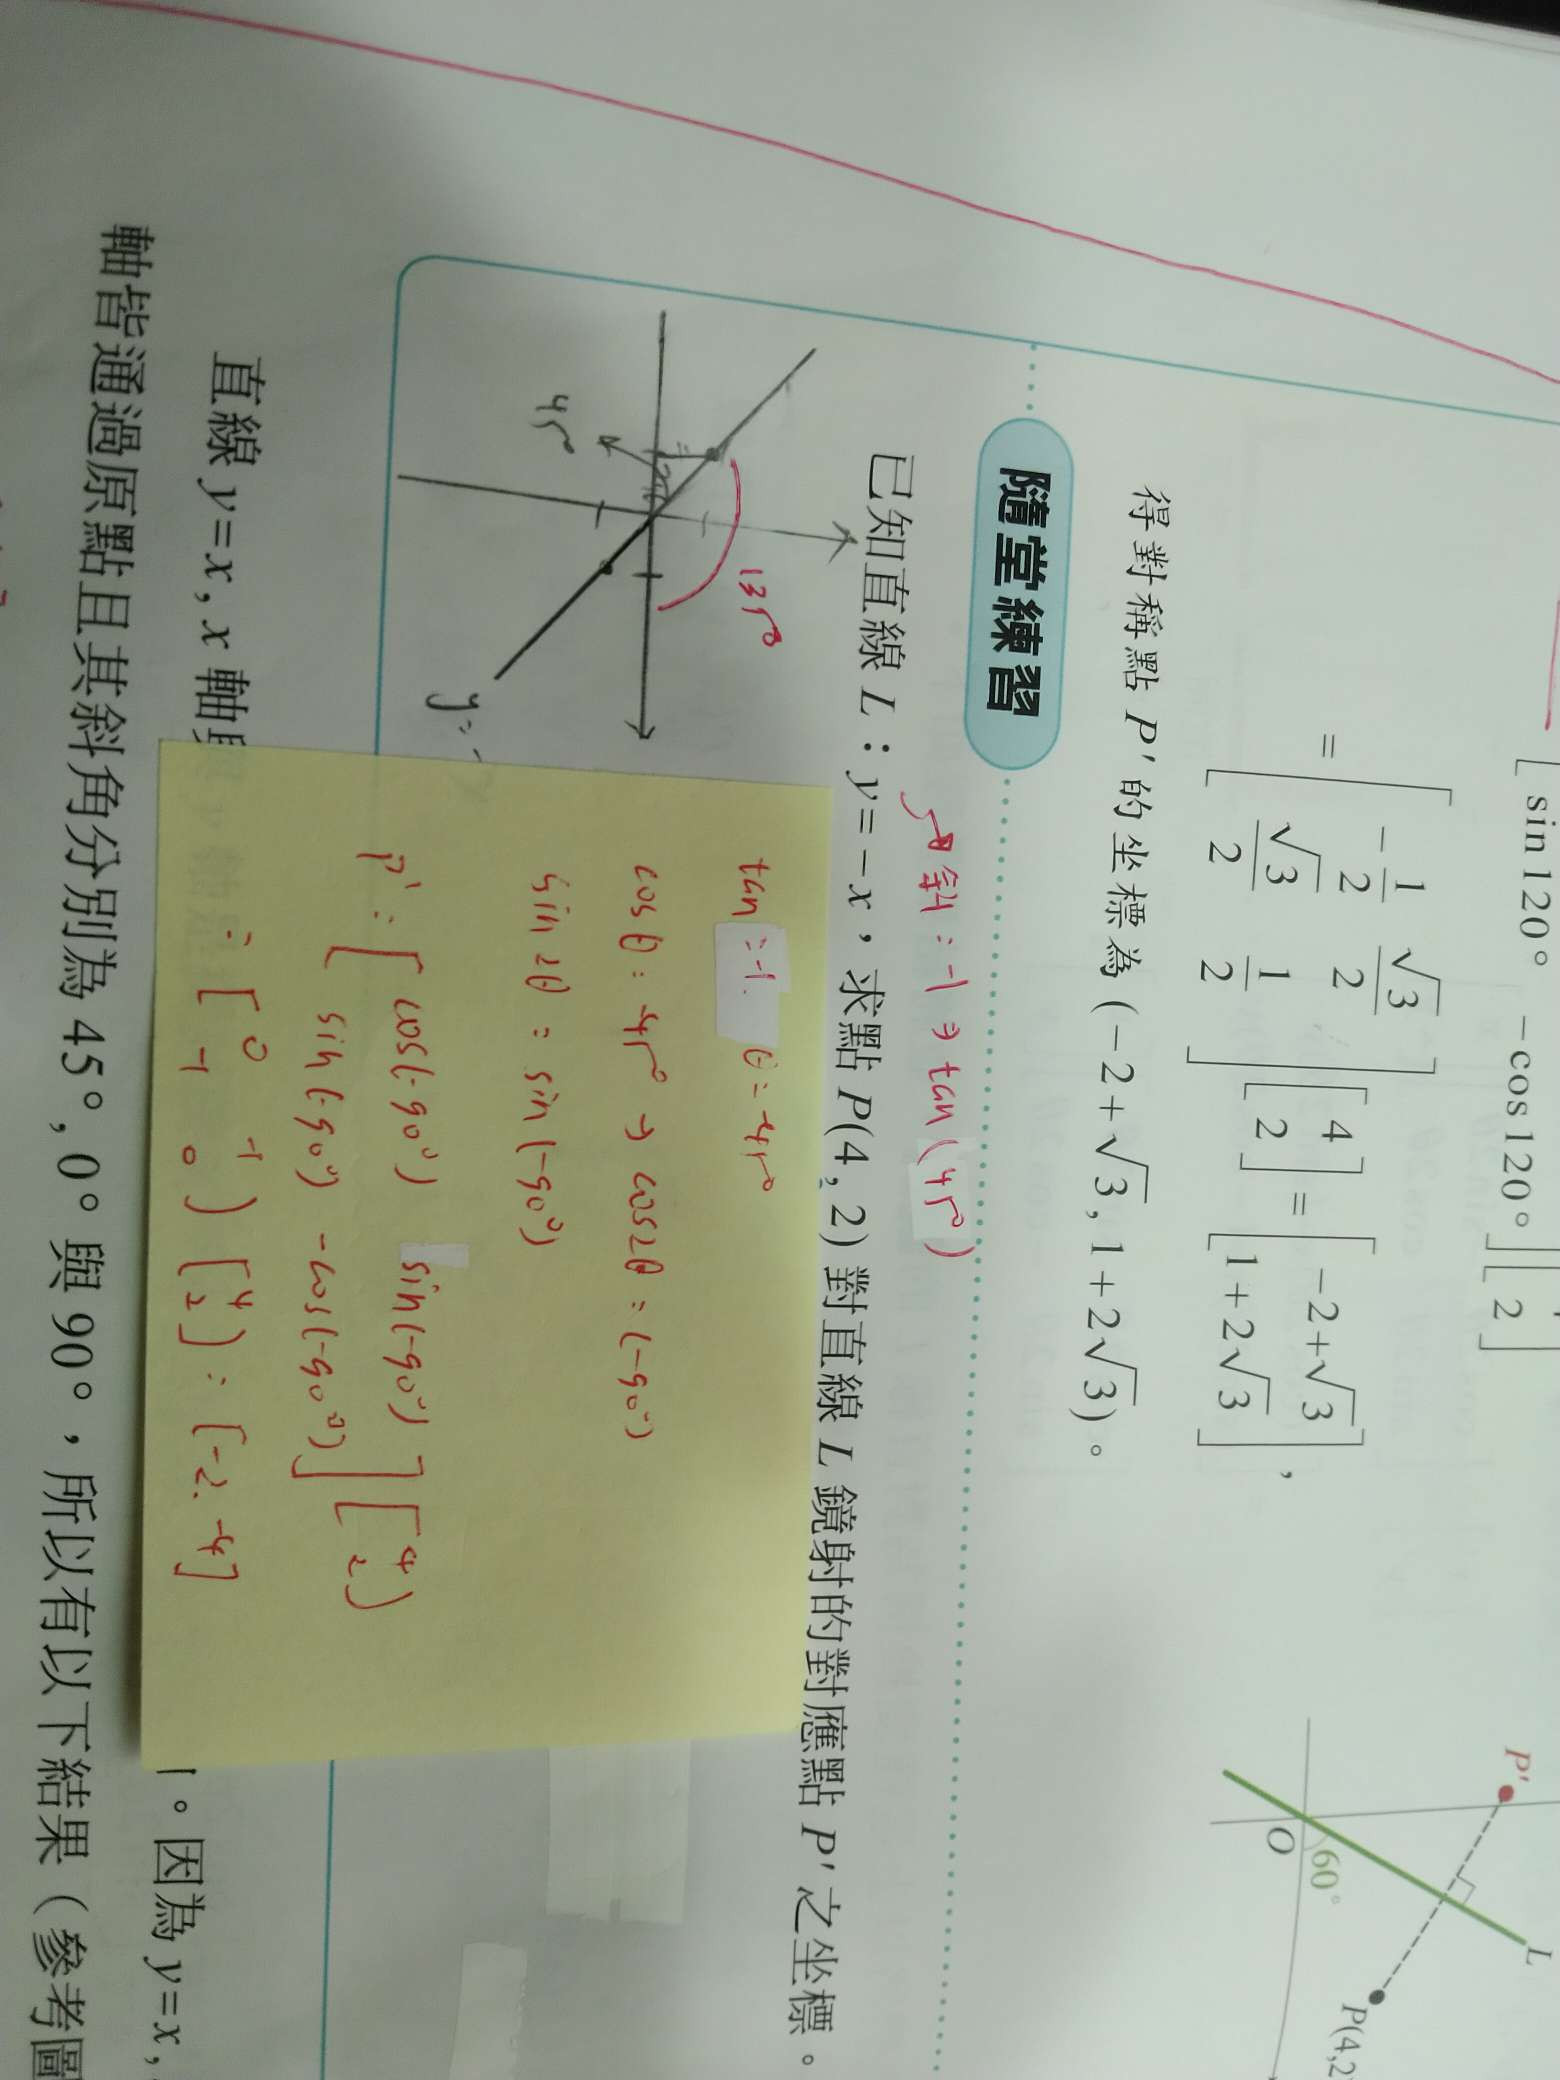 sin120° －cos120°
2
= －1/2 √3/2
√3/2 1/2
4
2
=
－2+√3
1+2√3
,
得對稱點 P′ 的坐標為 (－2+√3, 1+2√3)。
P′
L
60°
O
P(4,2
隨堂練習
斜:-1 ⇒ tan(45°)
已知直線 L：y=－x，求點 P(4, 2) 對直線 L 鏡射的對應點 P′ 之坐標。
135°
45°
y=-x
tan=-1. θ=-45°
cosθ:-45° → cos2θ=(-90°)
sin2θ=sin(-90°)
P′: [cos(-90°) sin(-90°)
sin(-90°) -cos(-90°)] [4
2]
= [0 -1
-1 0] [4
2] = [-2. -4]
直線 y=x, x 軸與
。因為 y=x,
軸皆通過原點且其斜角分別為 45°, 0° 與 90°，所以有以下結果（參考圖